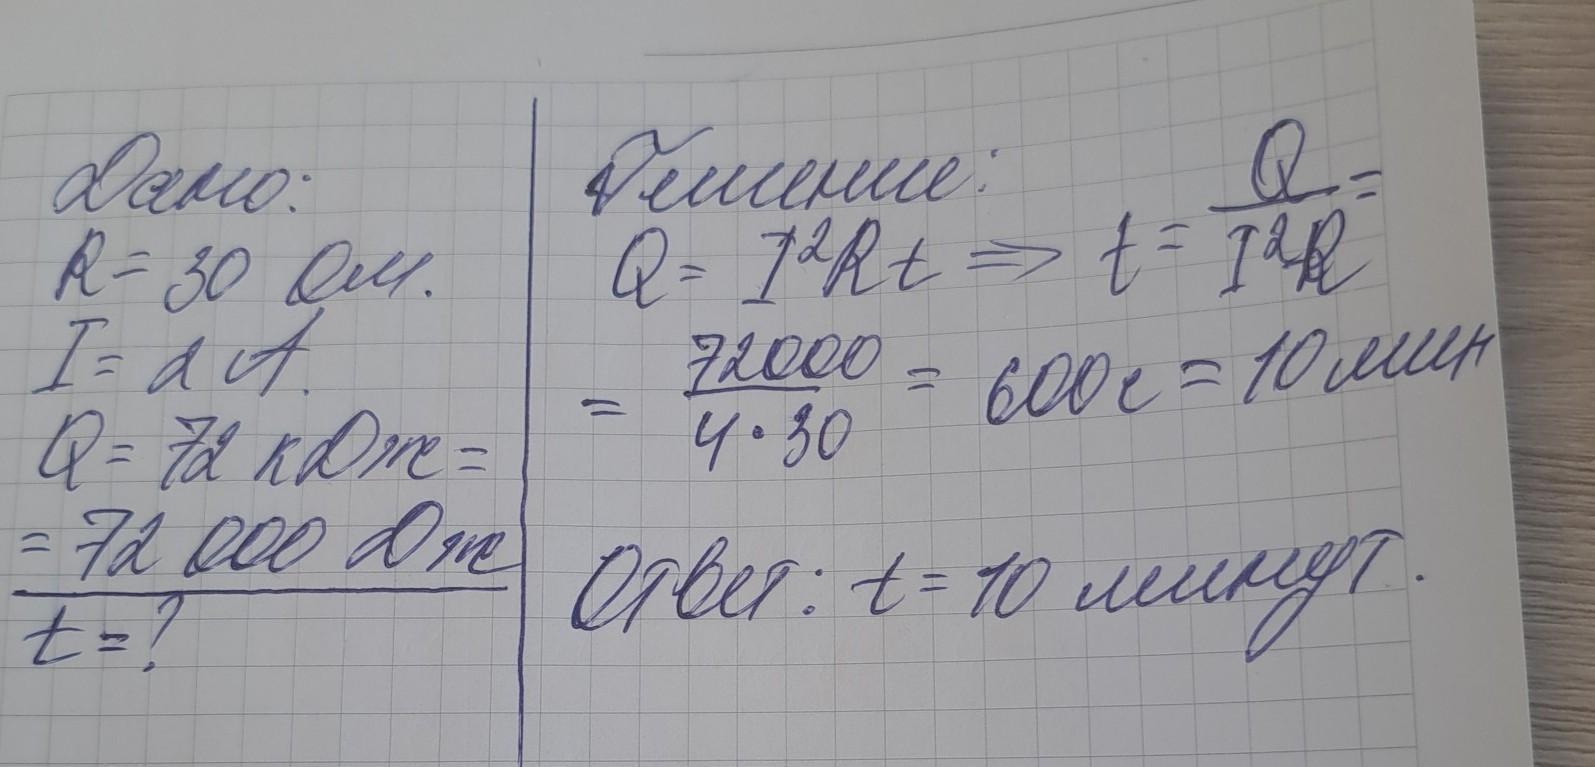 Дано:
R = 30 Ом.
I = 2 А.
Q = 72 кДж =
= 72 000 Дж
t = ?
Решение:
Q = I²Rt ⇒ t = Q/I²R =
= 72000/4·30 = 600с = 10 мин
Ответ: t = 10 минут.